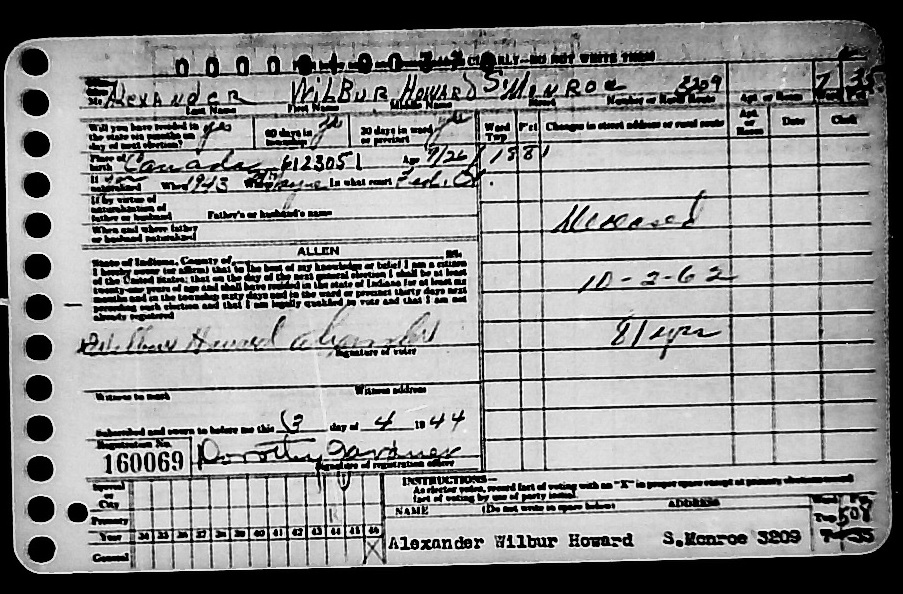 CLEARLY—DO NOT WRITE THEM
Alexander Wilbur Howard S. Monroe 3209 7 35
Last Name First Name Middle Name Street Number or Rural Route Apt. or Room
Will you have resided in the state six months on day of next election? yes 60 days in township? yes 30 days in ward or precinct yes
Ward Twp P'ct Changes in street address or rural route Apt. or Room Date Clerk
Place of birth Canada 6123051 Age 7/26/1881
If naturalized When 1943 Where Wayne In what court Fed. Ct.
If by virtue of naturalization of father or husband Father's or husband's name
When and where father or husband naturalized
Deceased
10-2-62
81 yrs
State of Indiana, County of ALLEN SS:
I hereby swear (or affirm) that to the best of my knowledge or belief I am a citizen
of the United States; that on the day of the next general election I shall be at least
twenty-one years of age and shall have resided in the state of Indiana for at least six
months and in the township sixty days and in the ward or precinct thirty days next
preceding such election and that I am legally qualified to vote and that I am not
already registered
Wilbur Howard Alexander
Signature of voter
Witness to mark Witness address
Subscribed and sworn to before me this 13 day of 4 1944
Registration No.
160069
Dorothy Gardner
Signature of registration officer
Special or City
Primary
Year 34 35 36 37 38 39 40 41 42 43 44 45 46
General X
INSTRUCTIONS—
As elector votes, record fact of voting with an "X" in proper space except at primary elections record
fact of voting by use of party initial.
NAME (Do not write in space below) ADDRESS
Ward Twp 508
Alexander Wilbur Howard S.Monroe 3209 7-35